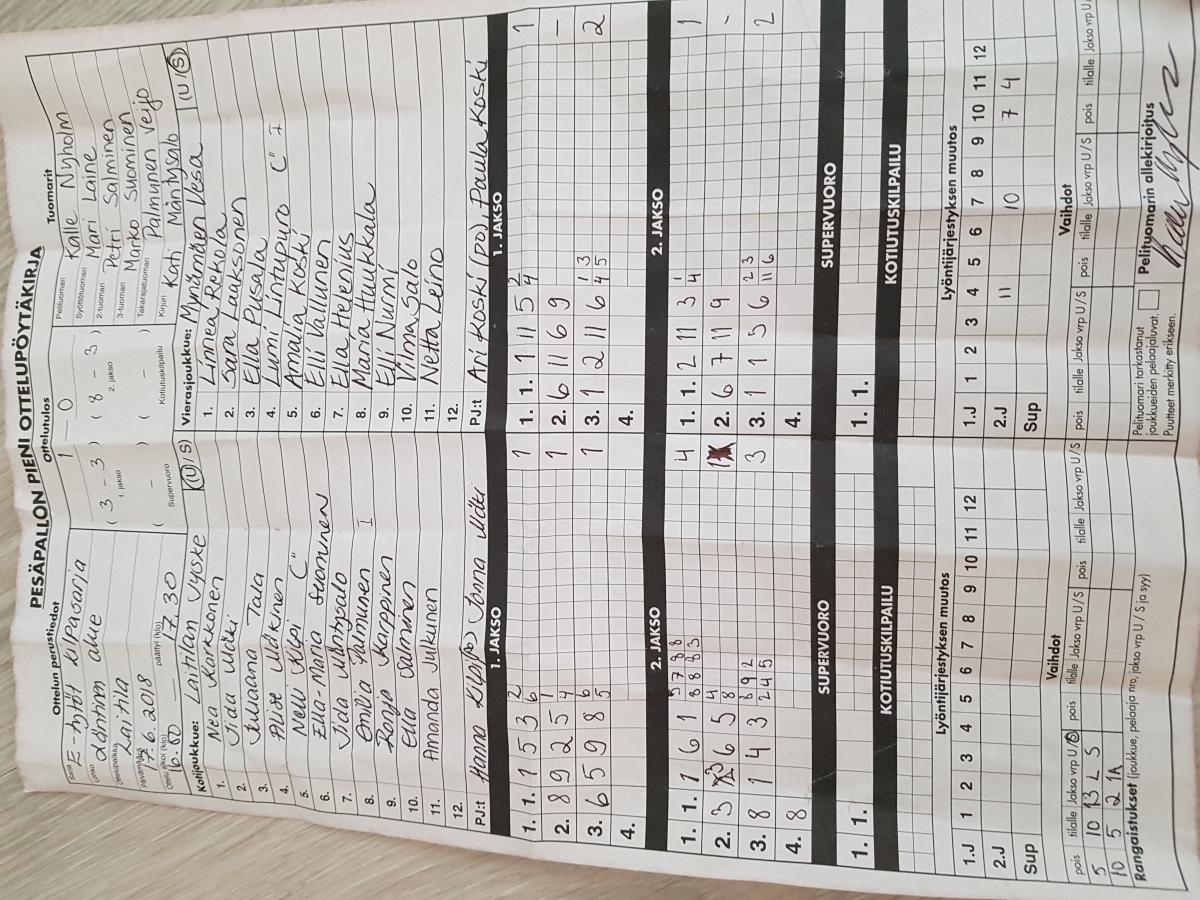 PESÄPALLON PIENI OTTELUPÖYTÄKIRJA
Ottelun perustiedot
Sarja E-tytöt kilpasarja
Lohko Läntinen alue
Ottelupaikka Laitila
Päivämäärä 17.6.2018
Ottelu alkoi (klo) 16.00 — päättyi (klo) 17.30
Ottelutulos
1 - 0
( 3 - 3 ) ( 8 - 3 )
1. jakso 2. jakso
( - ) ( - )
Supervuoro Kotiutuskilpailu
Tuomarit
Pelituomari Kalle Nyholm
Syöttötuomari Mari Laine
2-tuomari Petri Salminen
3-tuomari Marko Suominen
Takarajatuomari Palmunen Veijo
Kirjuri Kati Mäntysalo
Kotijoukkue: Laitilan Jyske (U/S)
1. Nea Korkkonen
2. Iida Mäki
3. Juliaana Tala
4. Alise Mäkinen
5. Nelli Kilpi C"
6. Ella-Maria Suominen
7. Iida Mäntysalo
8. Emilia Palmunen I
9. Ronja Karppinen
10. Ella Salminen
11. Amanda Julkunen
12.
PJ:t Hanna Kilpi (PO) Jonna Mäki
Vierasjoukkue: Mynämäen Vesa (U/S)
1. Linnea Rekola
2. Sara Laaksonen
3. Ella Pusala
4. Lumi Lintupuro C" I
5. Amalia Koski
6. Elli Vallunen
7. Ella Helenius
8. Maria Haukkala
9. Elli Nurmi
10. Vilma Salo
11. Netta Leino
12.
PJ:t Ari Koski (po), Paula Koski
1. JAKSO
1. 1. 1 5 3 2 6 1
2. 8 9 2 5 1 4 1
3. 6 5 9 8 6 5 1
4.
1. JAKSO
1. 1. 1 11 5 2 4 1
2. 6 11 6 9 –
3. 1 2 11 6 1 3 4 5 2
4.
2. JAKSO
1. 1. 1 6 1 5 7 8 8 8 8 8 3 4
2. 3 6 5 4 8 1
3. 8 1 4 3 8 9 2 2 4 5 3
4. 8
2. JAKSO
1. 1. 2 11 3 1 4 1
2. 6 7 11 9 -
3. 1 1 5 6 2 3 11 6 2
4.
SUPERVUORO
1. 1.
SUPERVUORO
1. 1.
KOTIUTUSKILPAILU
KOTIUTUSKILPAILU
Lyöntijärjestyksen muutos
1.J 1 2 3 4 5 6 7 8 9 10 11 12
2.J
Sup
Lyöntijärjestyksen muutos
1.J 1 2 3 4 5 6 7 8 9 10 11 12
2.J 11 10 7 4
Sup
Vaihdot
pois tilalle Jakso vrp U/S pois tilalle Jakso vrp U/S pois tilalle Jakso vrp U/S
5 10 13 L S
10 5 2 1A
Vaihdot
pois tilalle Jakso vrp U/S pois tilalle Jakso vrp U/S pois tilalle Jakso vrp U/S
Rangaistukset (joukkue, pelaaja nro, jakso vrp U / S ja syy)
Pelituomari tarkastanut
joukkueiden pelaajaluvat.
Puutteet merkitty erikseen.
Pelituomarin allekirjoitus